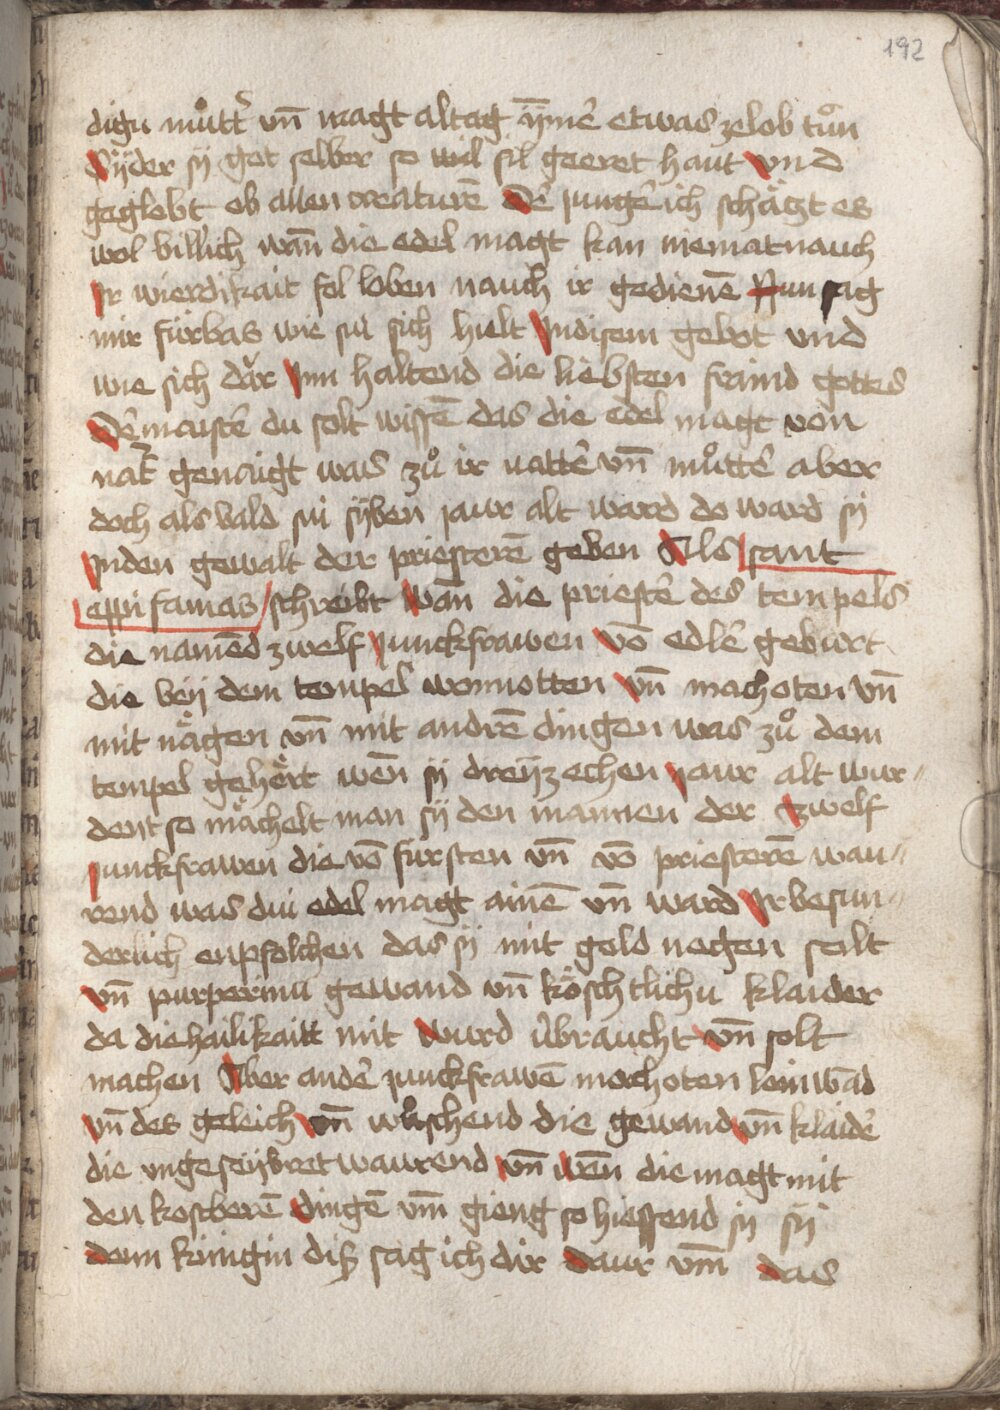 192
digu můttˀ vn̄ magt altag ÿmēˀ etwas zelob tůn
Syder sÿ got selber so wil fil geeret haut vnd
geglobt ob allen creaturē Dˀ jungˀ ich schäczt es
wol billich wan̄ die edel magt kan niemat nauch
Jr wierdikait fol loben nauch ir gedienē Nun sag
mir fürbas wie sui sich hielt Jn disem gebot vnd
wie sich dar Jnn haltend die liebsten fraind gottes
Dˀ maistˀ du solt wissē das die edel magt von
natˀ genaigt was zů ir vattˀ vn̄ můttˀ aber
doch als bald sui syben jaur alt ward do ward sÿ
Jn den gewalt der priesterē geben Als sant
eppifamas schreibt Wan̄ die priestˀ des tempels
die namēd zwelf Junckfrawen vō edlˀ geburt
die beÿ dem tempel wonnotten vn̄ machoten vn̄
mit nägen vn̄ mit andrē dingen was zů dem
tempel gehört wen̄ sÿ dreÿzechen jaur alt wur
dent so mächelt man sÿ den mannen der zwelf
junckfrawen die vō fürsten vn̄ vō priesterē wau
rend was dui edel magt ainē vn̄ ward Jr besun
derlich enpfolchen das sÿ mit gold neczen solt
vn̄ purperinu gewand vn̄ köschtlichu klaider
da die hailikaitt mit wurd v̓braucht vn̄ solt
machen Aber andˀ junckfrawē mochoten leinwād
vn̄ des geleich vn̄ wůschend die gewand vn̄ klaidˀ
die vngeseÿbret waurend vn̄ wēn die magt mit
den kostberē dingē vm̄ gieng so hiessend sÿ sÿ
denn kinigin diß sag ich dir daur vm̄ das